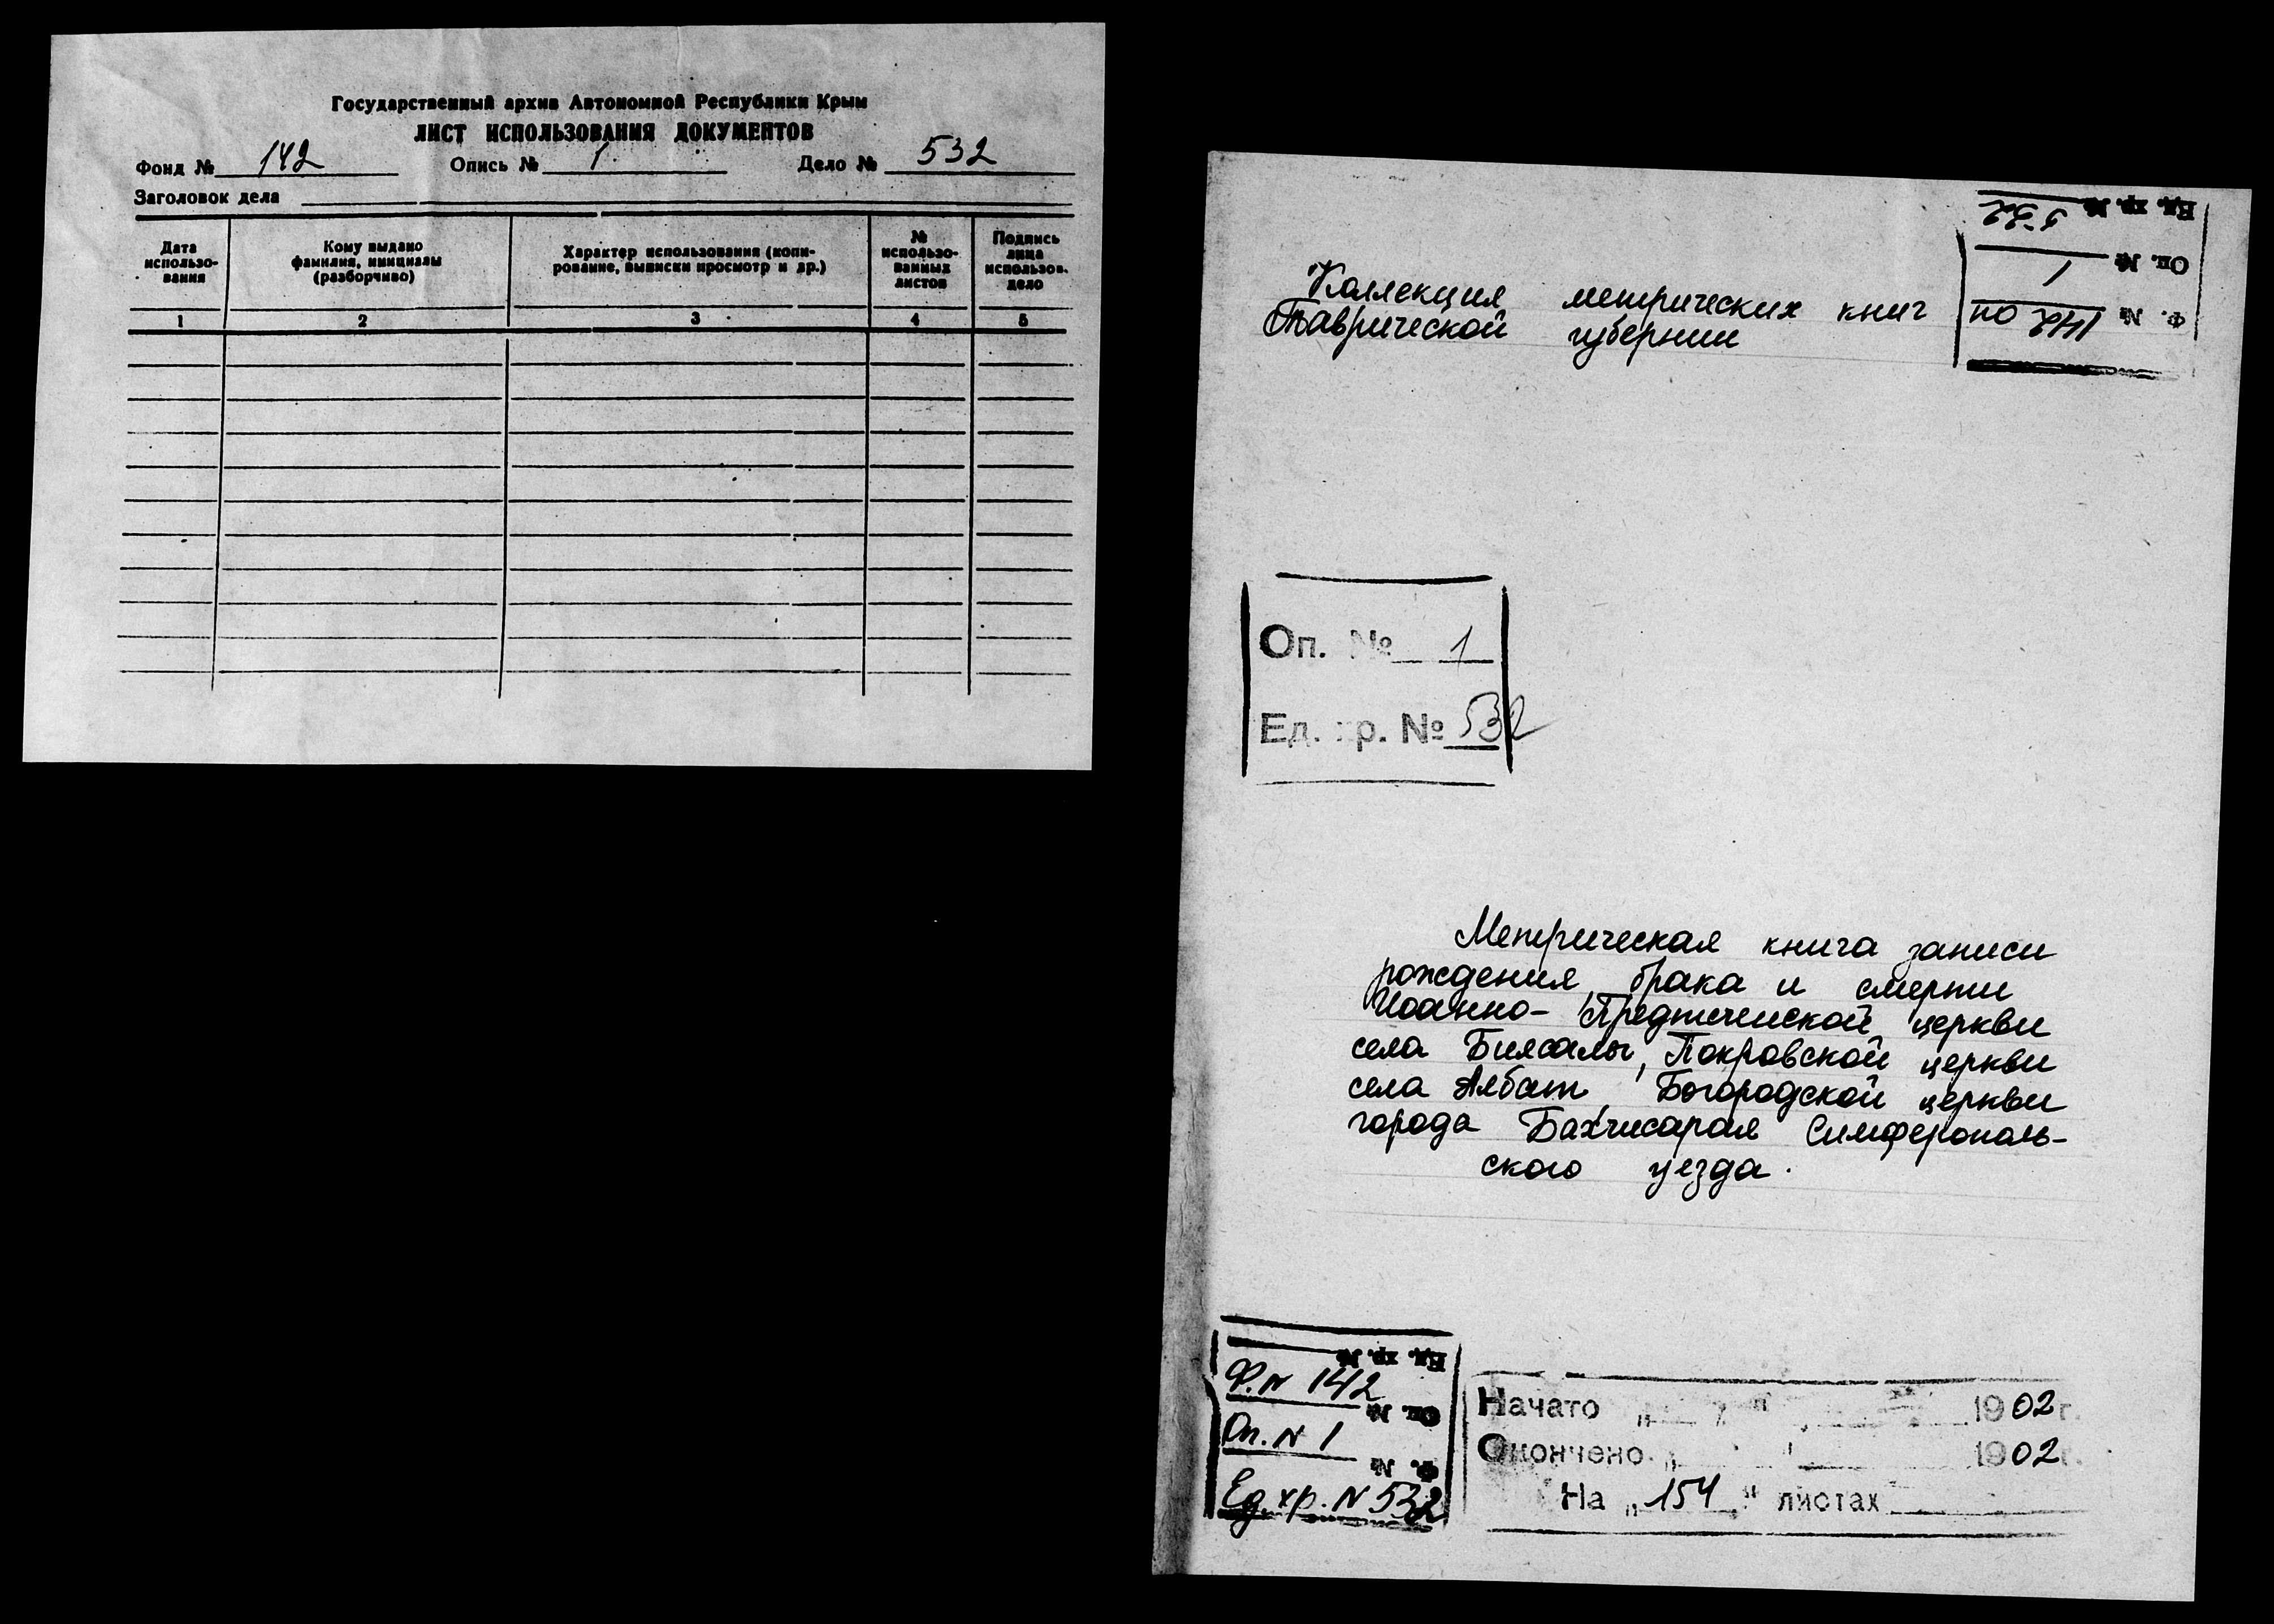 Государственный архив Автономной Республики Крым
ЛИСТ ИСПОЛЬЗОВАНИЯ ДОКУМЕНТОВ
Фонд № 142 Опись № 1 Дело № 532
Заголовок дела
Дата использо-вания
Кому выдано фамилия, инициалы (разборчиво)
Характер использования (копи-рование, выписки просмотр и др.)
№ использо-ванных листов
Подпись лица использов. дело
1 2 3 4 5
Ед. хр. № 532
Оп. № 1
Ф. № 142
Коллекция метрических книг
Таврической губернии
Оп. № 1
Ед. хр. № 532
Метрическая книга записи
рождения, брака и смерти
Иоанно-Предтеченской церкви
села Биясалы, Покровской церкви
села Албат, Богородской церкви
города Бахчисарая Симферополь-
ского уезда.
Ед. хр. №
Ф. N 142
Оп. №
Оп. N 1
Ф. №
Ед. хр. N 532
Начато 1902 г.
Окончено 1902 г.
На „154" листах